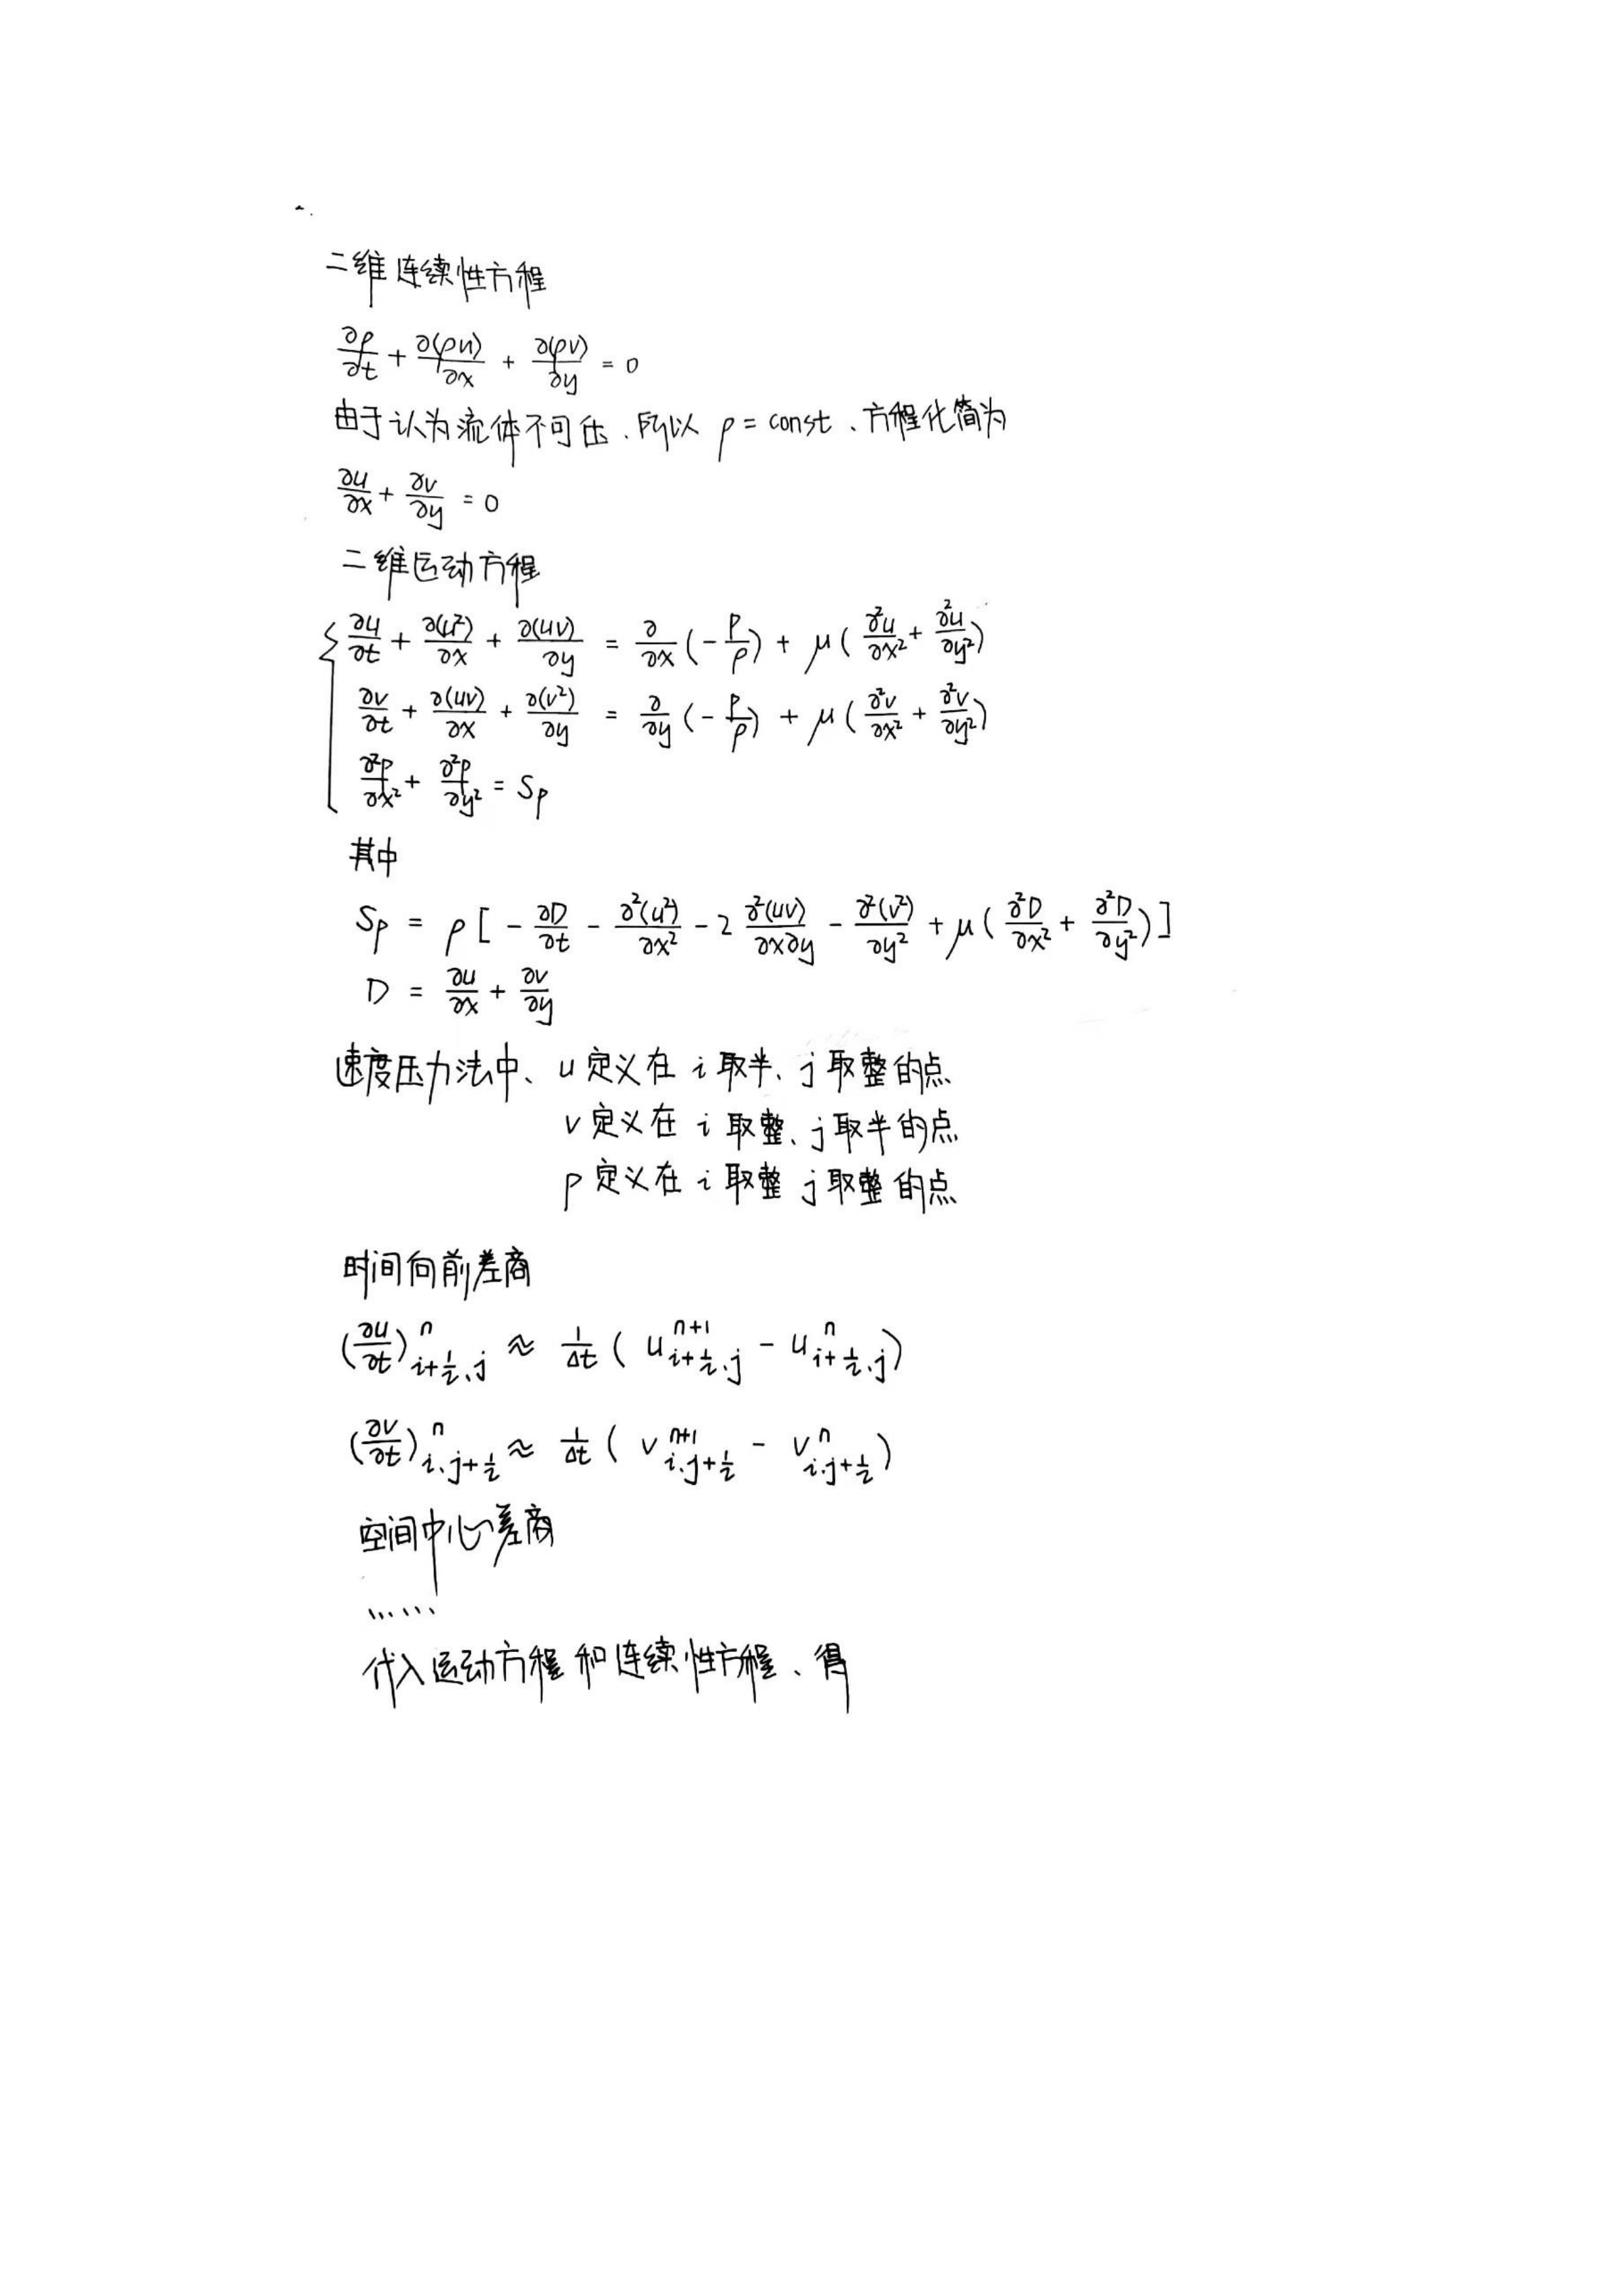 二维连续性方程
∂ρ/∂t + ∂(ρu)/∂x + ∂(ρv)/∂y = 0
由于认为流体不可压、所以 ρ = const、方程化简为
∂u/∂x + ∂v/∂y = 0
二维运动方程
{ ∂u/∂t + ∂(u²)/∂x + ∂(uv)/∂y = ∂/∂x (-p/ρ) + μ(∂²u/∂x² + ∂²u/∂y²)
∂v/∂t + ∂(uv)/∂x + ∂(v²)/∂y = ∂/∂y (-p/ρ) + μ(∂²v/∂x² + ∂²v/∂y²)
∂²p/∂x² + ∂²p/∂y² = Sₚ
其中
Sₚ = ρ[-∂D/∂t - ∂²(u²)/∂x² - 2 ∂²(uv)/∂x∂y - ∂²(v²)/∂y² + μ(∂²D/∂x² + ∂²D/∂y²)]
D = ∂u/∂x + ∂v/∂y
速度压力法中、u 定义在 i 取半、j 取整的点
v 定义在 i 取整、j 取半的点
p 定义在 i 取整 j 取整的点
时间向前差商
(∂u/∂t)^n_{i+1/2、j} ≈ 1/Δt (u^{n+1}_{i+1/2、j} - u^n_{i+1/2、j})
(∂v/∂t)^n_{i、j+1/2} ≈ 1/Δt (v^{n+1}_{i、j+1/2} - v^n_{i、j+1/2})
空间中心差商
……
代入运动方程和连续性方程、得